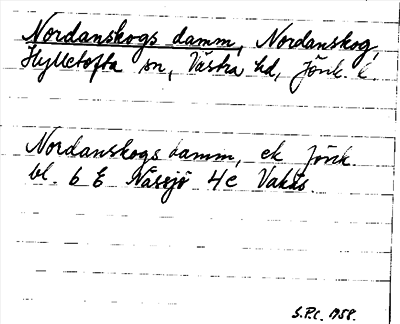 Nordanskogs damm, Nordanskog,
Hylletofta sn, Västra hd, Jönk. l
Nordanskogs damm, ek Jönk.
bl. 6 E Nässjö 4c
S.P.C. 1958.